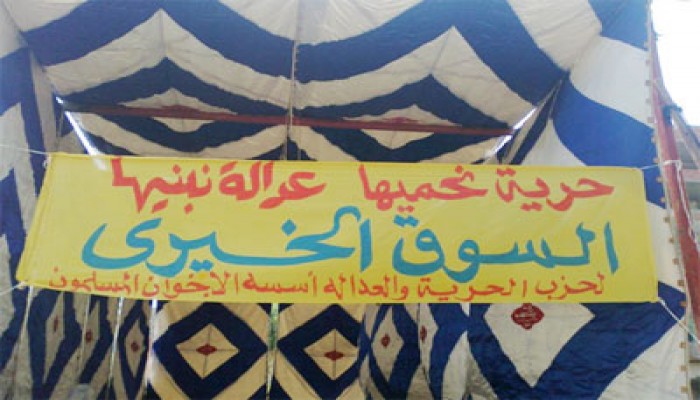 حرية نحميها عدالة نبنيها
السوق الخيرى
لحزب الحرية والعداله أسسه الاخوان المسلمون